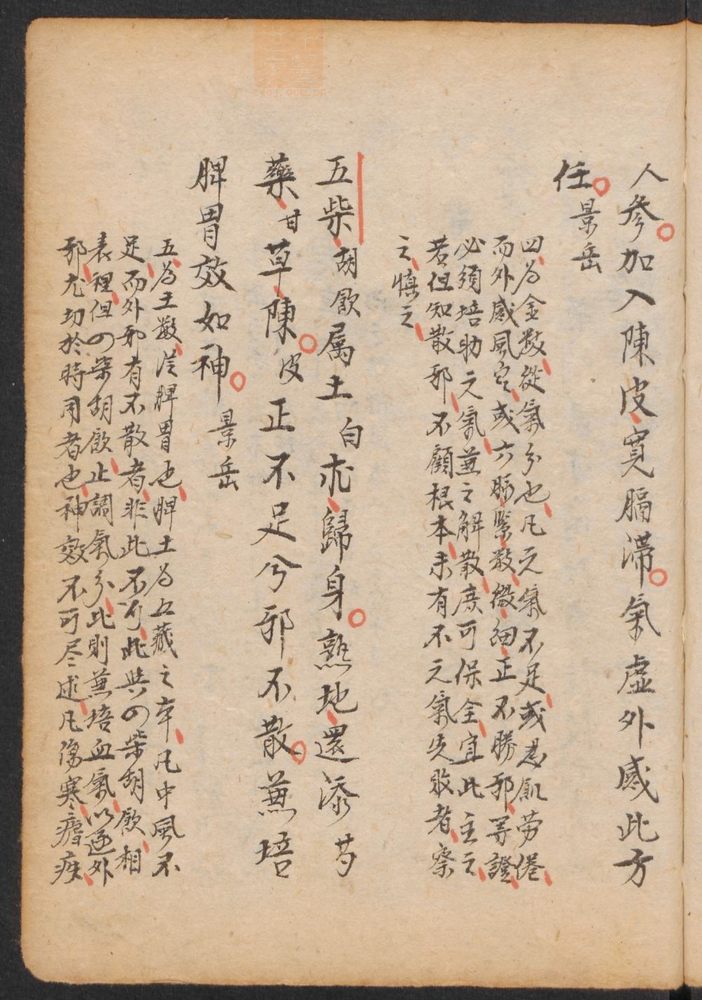 人參加入陳皮寬膈滯氣虛外感此方
任景岳
四為金數從氣分也凡元氣不足或忍飢勞倦
而外感風寒或六脈緊數微細正不勝邪等證
必須培助元氣兼之解散庶可保全宜此主之
若但知散邪不顧根本未有不元氣失敗者察
之慎之
五柴胡飲屬土白朮歸身熟地還添芍
藥甘草陳皮正不足兮邪不散兼培
脾胃效如神景岳
五為土數從脾胃也脾土為五藏之本凡中風不
足而外邪有不散者非此不可此與四柴胡飲相
表裡但四柴胡飲止調氣分此則兼培血氣以逐外
邪尤切於時用者也神效不可尽述凡傷寒瘧疾